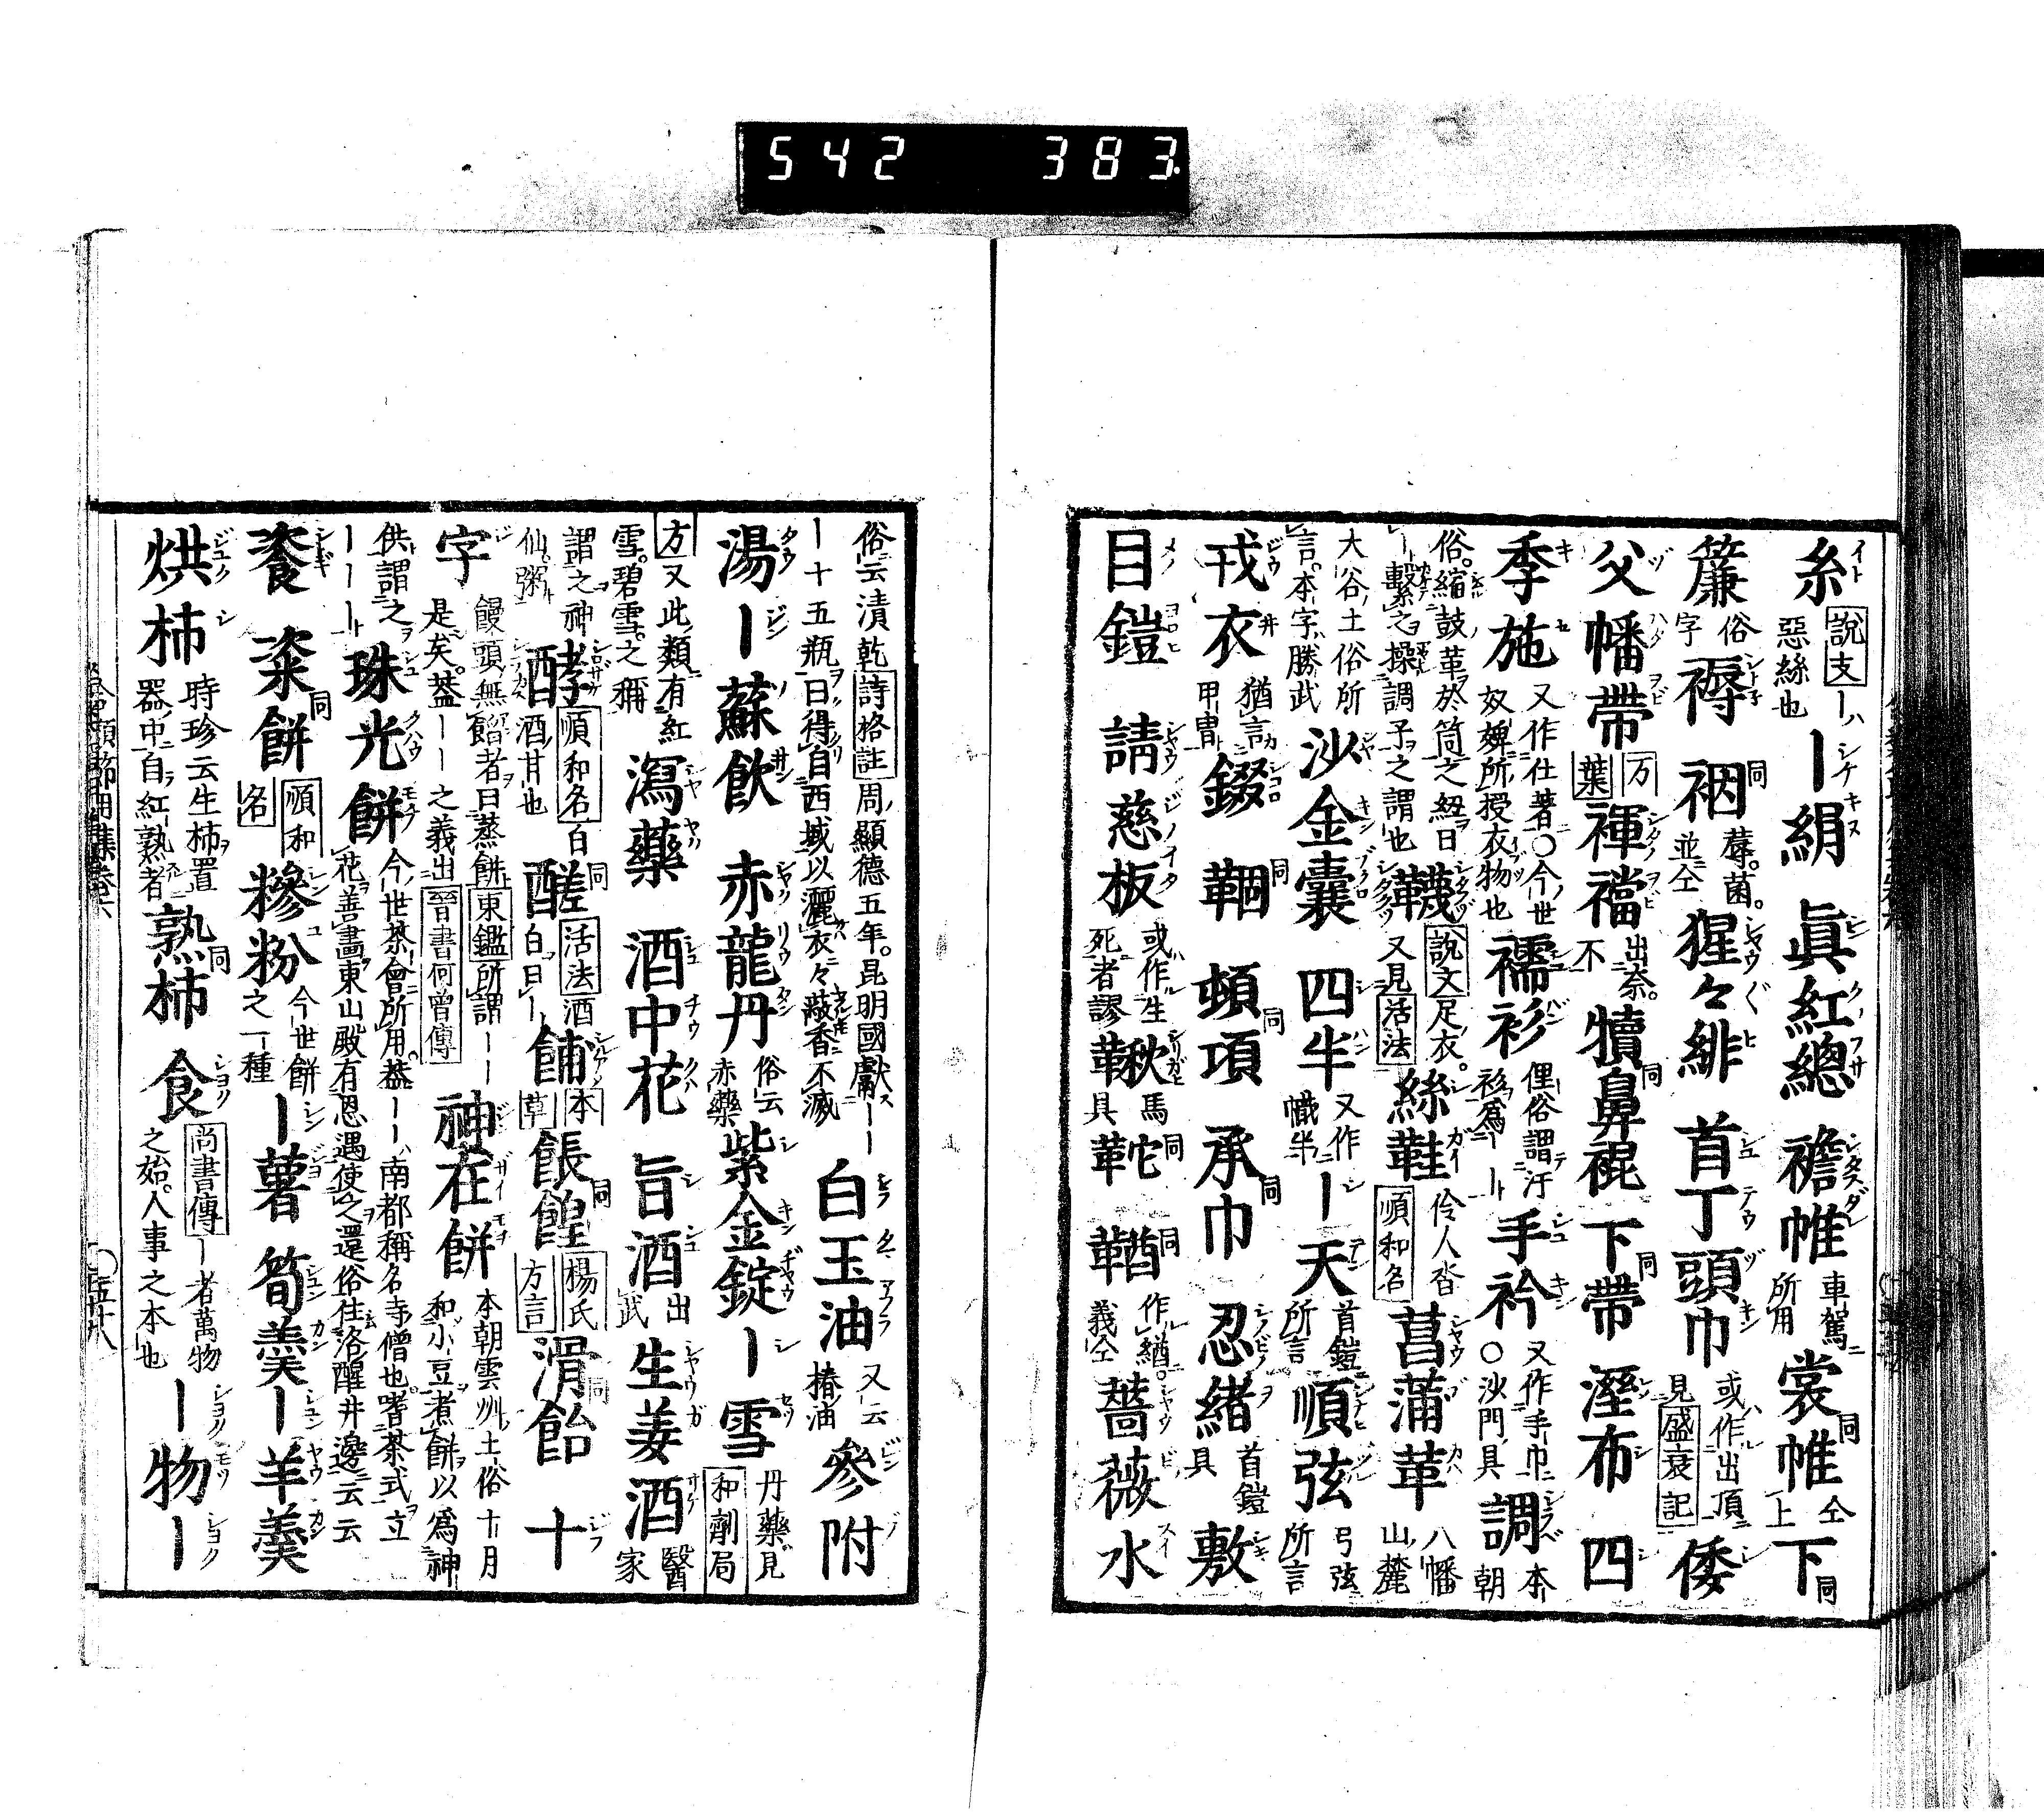 542 383.
糸 説文ーハ惡絲也 ー絹 眞紅總 襜帷 車駕所用 裳帷 同仝上 下 同
簾 俗字 褥 裀 同 蓐。菌。並仝 猩々緋 首丁頭巾 或作出頂見盛衰記 倭
父幡帶 万葉 褌襠 出奈。不 犢鼻裩 同 下帶 同 溼布 四
季施 又作仕著○今世奴婢所授衣物也 襦衫 俚俗謂汗衫爲ーー 手衿 又作手巾○沙門具 調 本朝
俗。縮鼓革於筒之紐曰ーー繫之操調子之謂也 韈 説文足衣。又見活法 絲鞋 伶人沓順和名 菖蒲革 八幡山麓
大谷土俗所言。本字勝武 沙金嚢 四半 又作幟半 ー天 首鎧所言 順弦 弓弦所言
戎衣 猶言甲冑 錣 䩜 同 頓項 同 承巾 同 忍緒 首鎧具 敷
目鎧 請慈板 或作生死者謬 鞦 馬具 䩛 同 鞧 同 作緧。義仝 薔薇水
俗云清乾詩格註周顯德五年。昆明國獻ーー 白玉油 又云椿油 參附
ー十五瓶曰得自西域以灑衣々蔽香不滅
湯 ー蘇飲 赤龍丹 俗云赤藥 紫金錠 ー雪 丹藥見和劑局
方又此類有紅雪。碧雪。之稱 瀉藥 酒中花 旨酒 出武 生姜酒 醫家
謂之神仙粥 酵 順和名白酒甘也 醝 同 活法酒白曰ー 餔 本草 餦餭 同 楊氏方言 滑飴 同 十
字 饅頭無餡者曰蒸餅東鑑所謂ーー是矣。蓋ーー之義出晉書何曾傳 神在餅 本朝雲州土俗十月和小豆煮餅以爲神
供謂之ーーー 珠光餅 今世茶會所用。蓋ーー南都稱名寺僧也嗜茶式立花善畫東山殿有恩遇使之還俗住洛醒井邊云云
餈 粢餅 同 順和名 糝粉 今世餅之一種 ー薯 筍羹 ー羊羹
烘柿 時珍云生柿置器中自紅熟者 熟柿 同 食 尚書傳ー者萬物之始。人事之本也 ー物 ー